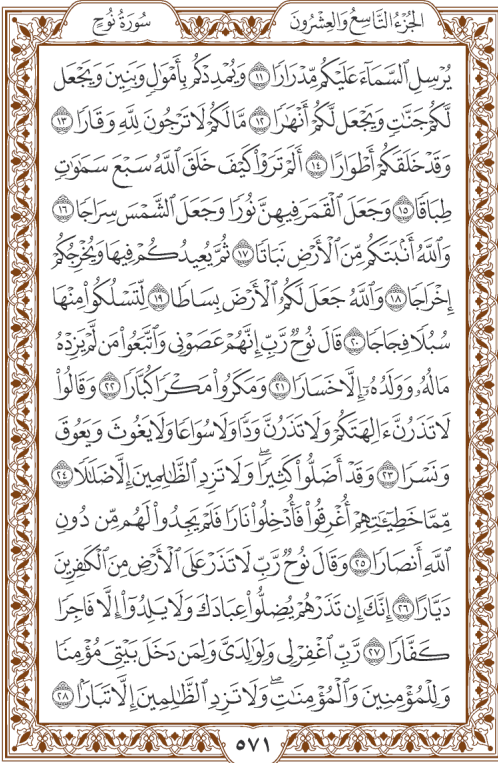 سُورَةُ نُوحٍ
الجُزْءُ التَّاسِعُ وَالعِشْرُونَ
يُرْسِلِ ٱلسَّمَآءَ عَلَيْكُم مِّدْرَارٗا ١١ وَيُمْدِدْكُم بِأَمْوَٰلٖ وَبَنِينَ وَيَجْعَل
لَّكُمْ جَنَّٰتٖ وَيَجْعَل لَّكُمْ أَنْهَٰرٗا ١٢ مَّا لَكُمْ لَا تَرْجُونَ لِلَّهِ وَقَارٗا ١٣
وَقَدْ خَلَقَكُمْ أَطْوَارًا ١٤ أَلَمْ تَرَوْاْ كَيْفَ خَلَقَ ٱللَّهُ سَبْعَ سَمَٰوَٰتٖ
طِبَاقٗا ١٥ وَجَعَلَ ٱلْقَمَرَ فِيهِنَّ نُورٗا وَجَعَلَ ٱلشَّمْسَ سِرَاجٗا ١٦
وَٱللَّهُ أَنۢبَتَكُم مِّنَ ٱلْأَرْضِ نَبَاتٗا ١٧ ثُمَّ يُعِيدُكُمْ فِيهَا وَيُخْرِجُكُمْ
إِخْرَاجٗا ١٨ وَٱللَّهُ جَعَلَ لَكُمُ ٱلْأَرْضَ بِسَاطٗا ١٩ لِّتَسْلُكُواْ مِنْهَا
سُبُلٗا فِجَاجٗا ٢٠ قَالَ نُوحٞ رَّبِّ إِنَّهُمْ عَصَوْنِي وَٱتَّبَعُواْ مَن لَّمْ يَزِدْهُ
مَالُهُۥ وَوَلَدُهُۥٓ إِلَّا خَسَارٗا ٢١ وَمَكَرُواْ مَكْرٗا كُبَّارٗا ٢٢ وَقَالُواْ
لَا تَذَرُنَّ ءَالِهَتَكُمْ وَلَا تَذَرُنَّ وَدّٗا وَلَا سُوَاعٗا وَلَا يَغُوثَ وَيَعُوقَ
وَنَسْرٗا ٢٣ وَقَدْ أَضَلُّواْ كَثِيرٗاۖ وَلَا تَزِدِ ٱلظَّٰلِمِينَ إِلَّا ضَلَٰلٗا ٢٤
مِّمَّا خَطِيٓـَٰٔتِهِمْ أُغْرِقُواْ فَأُدْخِلُواْ نَارٗا فَلَمْ يَجِدُواْ لَهُم مِّن دُونِ
ٱللَّهِ أَنصَارٗا ٢٥ وَقَالَ نُوحٞ رَّبِّ لَا تَذَرْ عَلَى ٱلْأَرْضِ مِنَ ٱلْكَٰفِرِينَ
دَيَّارًا ٢٦ إِنَّكَ إِن تَذَرْهُمْ يُضِلُّواْ عِبَادَكَ وَلَا يَلِدُوٓاْ إِلَّا فَاجِرٗا
كَفَّارٗا ٢٧ رَّبِّ ٱغْفِرْ لِي وَلِوَٰلِدَيَّ وَلِمَن دَخَلَ بَيْتِيَ مُؤْمِنٗا
وَلِلْمُؤْمِنِينَ وَٱلْمُؤْمِنَٰتِۖ وَلَا تَزِدِ ٱلظَّٰلِمِينَ إِلَّا تَبَارَۢا ٢٨
٥٧١